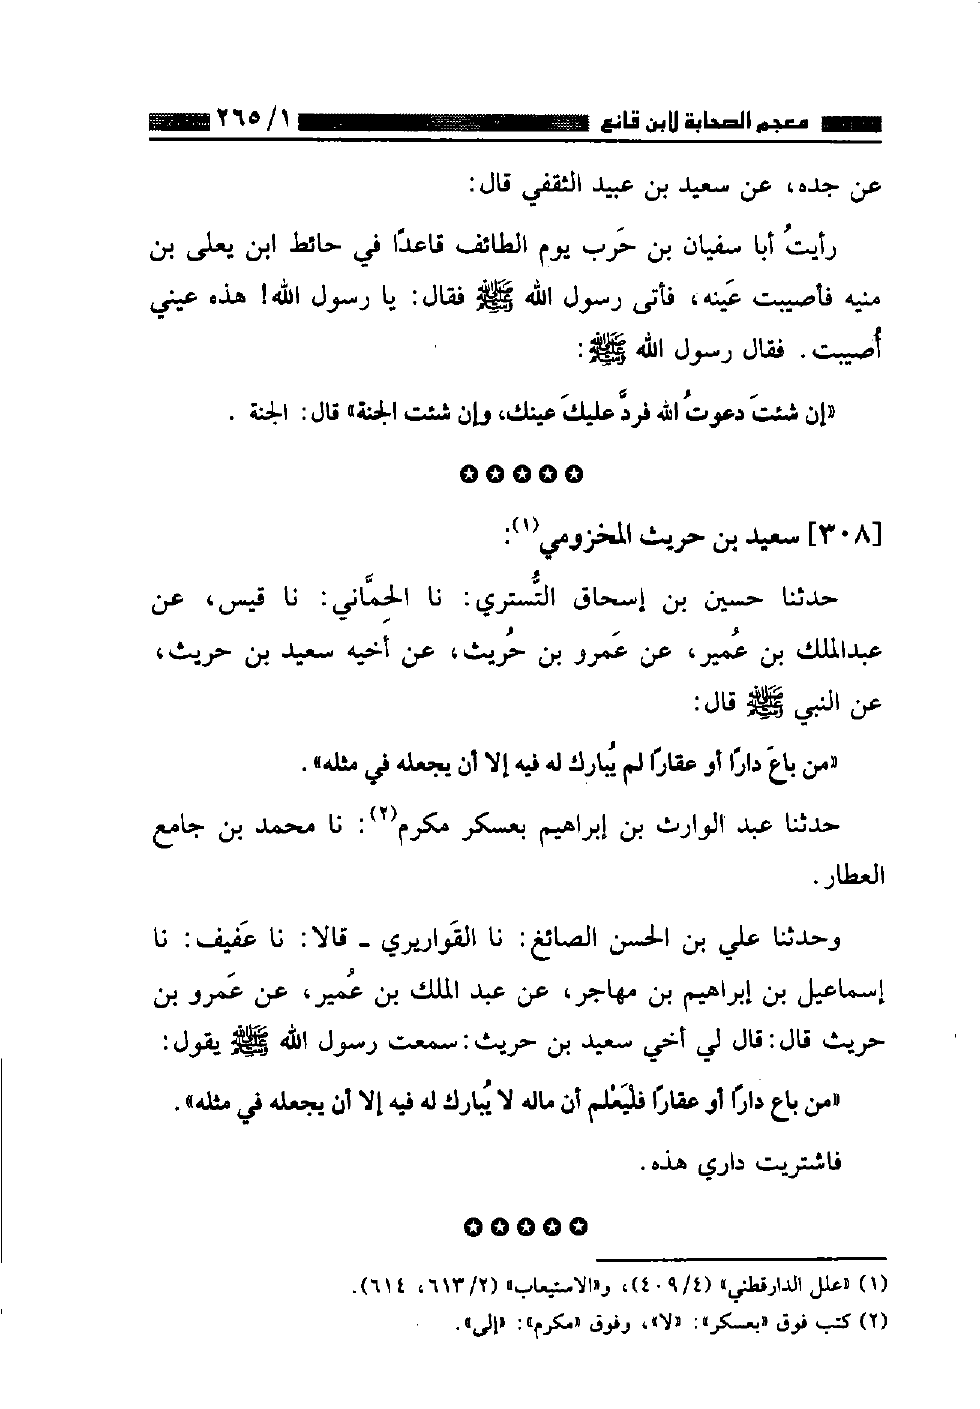 معجم الصحابة لابن قانع ١/ ٢٦٥
عن جده، عن سعيد بن عبيد الثقفي قال:
رأيتُ أبا سفيان بن حَرب يوم الطائف قاعدًا في حائط ابن يعلى بن
منيه فأصيبت عَينه، فأتى رسول الله ﷺ فقال: يا رسول الله! هذه عيني
أُصيبت. فقال رسول الله ﷺ:
«إن شئتَ دعوتُ الله فردَّ عليكَ عينك، وإن شئت الجنة» قال: الجنة .
✪ ✪ ✪ ✪ ✪
[٣٠٨] سعيد بن حريث المخزومي(١):
حدثنا حسين بن إسحاق التُّستري: نا الحِمَّاني: نا قيس، عن
عبدالملك بن عُمير، عن عَمرو بن حُريث، عن أخيه سعيد بن حريث،
عن النبي ﷺ قال:
«من باعَ دارًا أو عقارًا لم يُبارك له فيه إلا أن يجعله في مثله».
حدثنا عبد الوارث بن إبراهيم بعسكر مكرم(٢): نا محمد بن جامع
العطار.
وحدثنا علي بن الحسن الصائغ: نا القَواريري - قالا: نا عَفيف: نا
إسماعيل بن إبراهيم بن مهاجر، عن عبد الملك بن عُمير، عن عَمرو بن
حريث قال: قال لي أخي سعيد بن حريث: سمعت رسول الله ﷺ يقول:
«من باع دارًا أو عقارًا فليَعْلم أن ماله لا يُبارك له فيه إلا أن يجعله في مثله».
فاشتريت داري هذه.
✪ ✪ ✪ ✪ ✪
(١) «علل الدارقطني» (٤/ ٤٠٩)، و«الاستيعاب» (٢/ ٦١٣، ٦١٤).
(٢) كتب فوق «بعسكر»: «لا»، وفوق «مكرم»: «إلى».